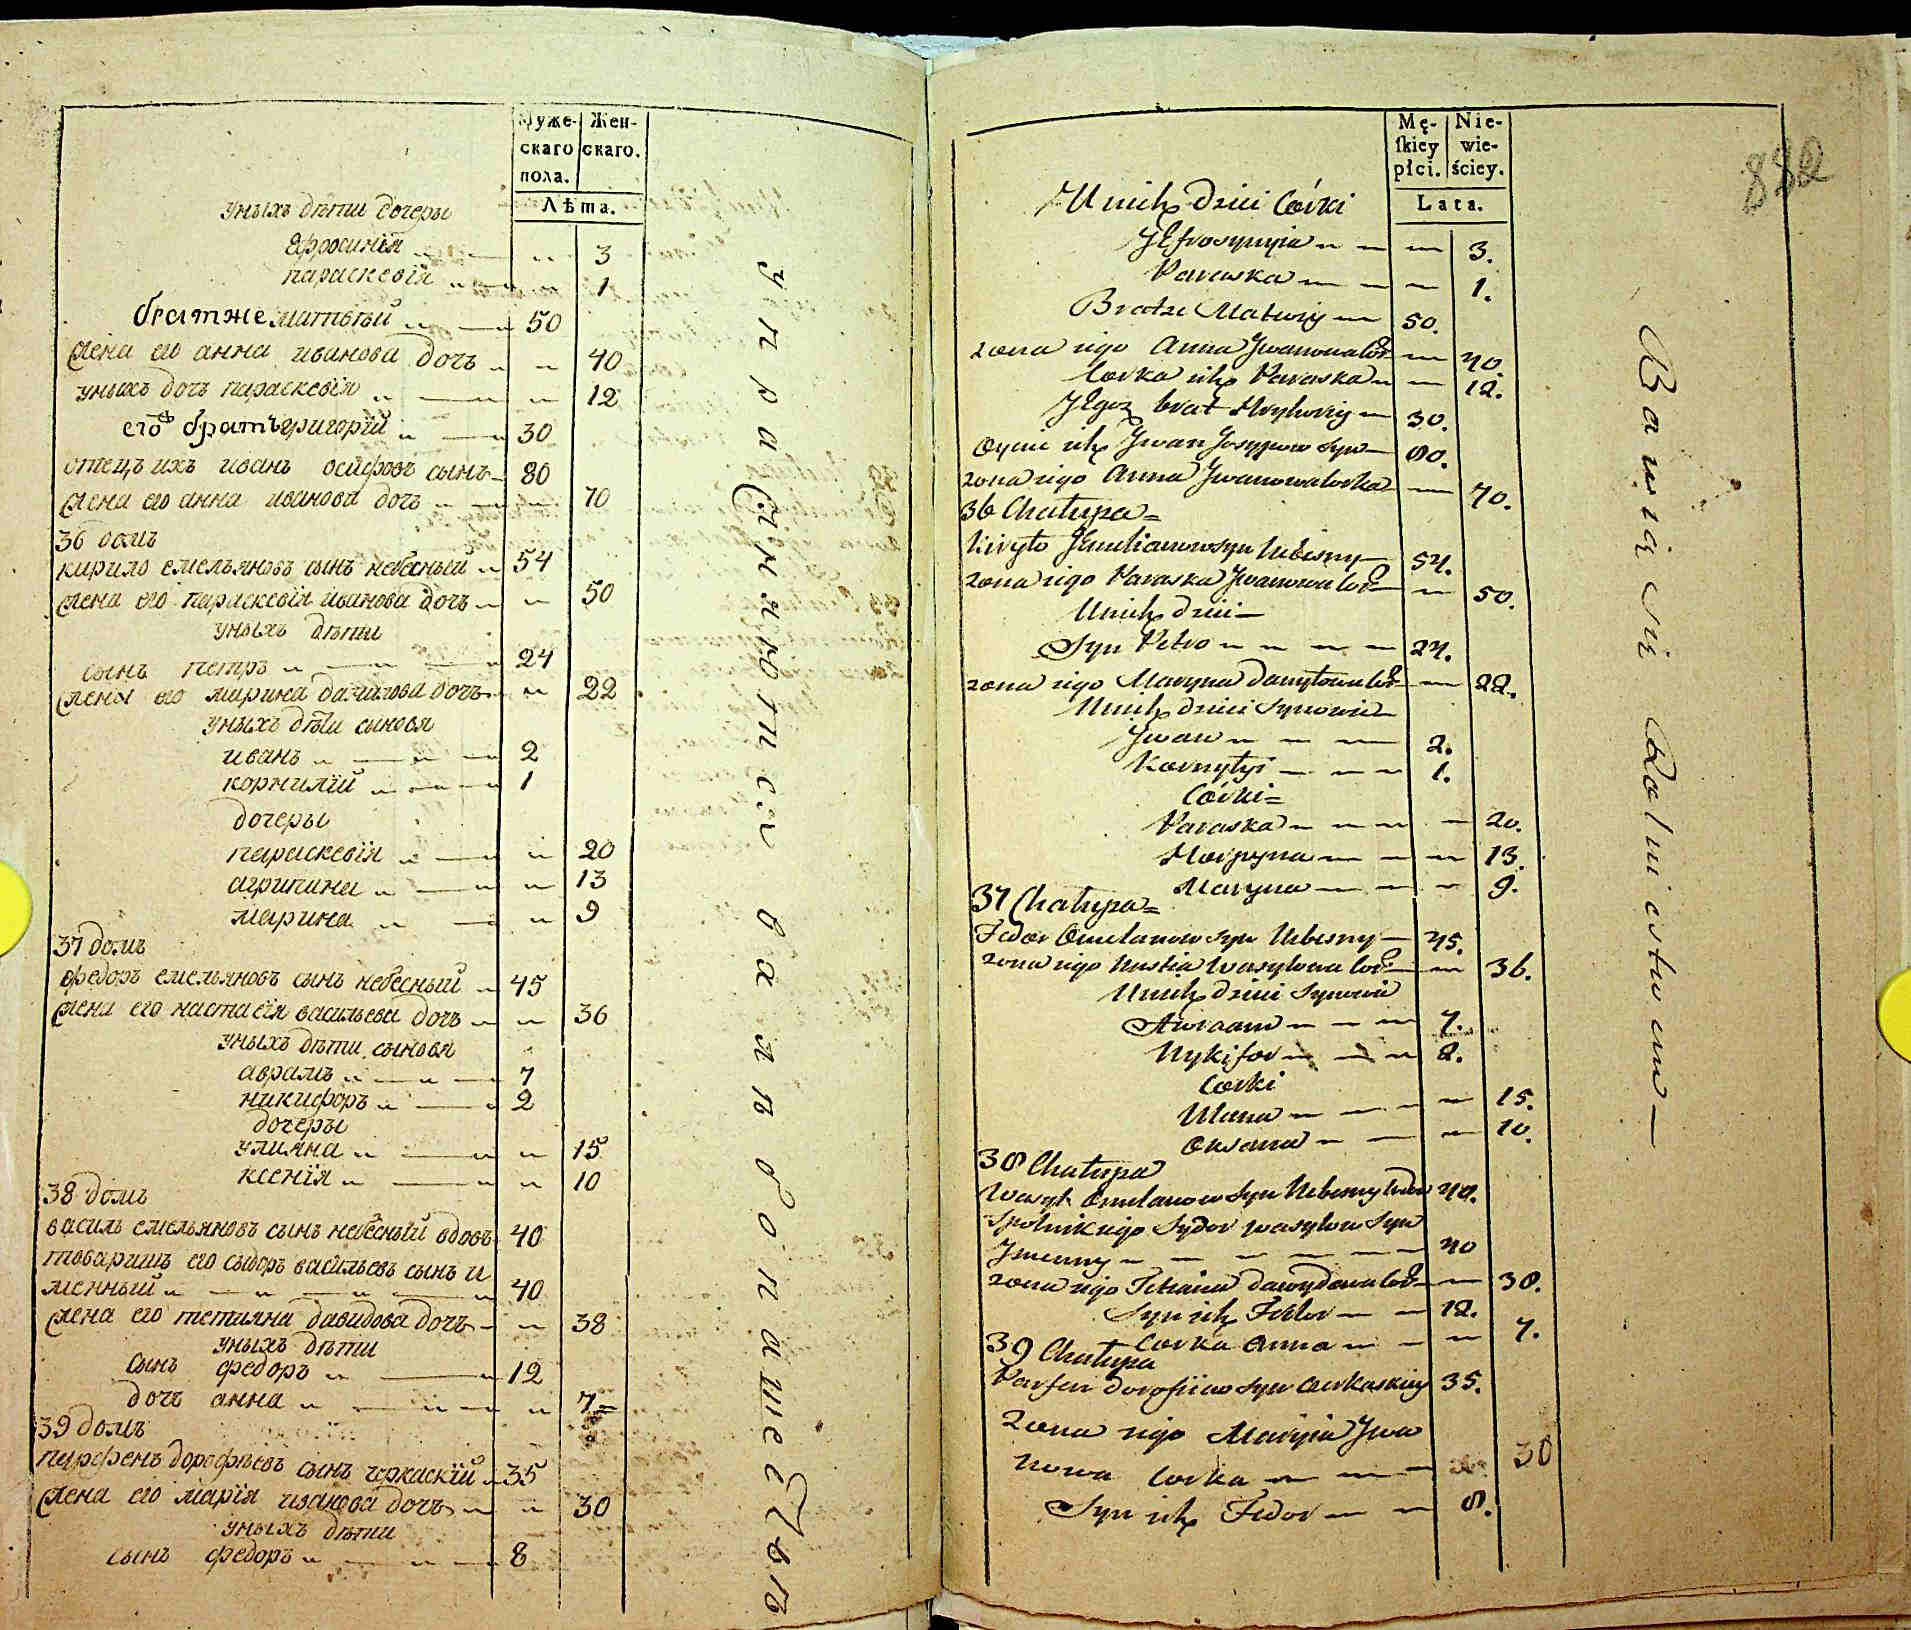 Муже-
скаго
пола.
Жен-
скаго.
Лѣта.
уныхъ дѣти дочеры
Ефросинія 3
параскевія 1
братже матвѣй 50
жена его анна иванова дочъ 40
уныхъ дочъ параскевія 12
его братъ григорій 30
отецъ ихъ иванъ осифовъ сынъ 80
жена его анна иванова дочъ 70
36 домъ
кирило емельяновъ сынъ небесный 54
жена его параскевія иванова дочъ 50
уныхъ дѣти
сынъ петръ 24
жена его марина данилова дочъ 22
уныхъ дѣти сыновя
иванъ 2
корнилій 1
дочеры
параскевія 20
агрипина 13
марина 9
37 домъ
федоръ емельяновъ сынъ небесный 45
жена его настасія васильева дочъ 36
уныхъ дѣти сыновя
аврамъ 7
никифоръ 2
дочеры
улияна 15
ксенія 10
38 домъ
василь емельяновъ сынъ небесный вдовъ 40
товаришъ его сыдоръ васильевъ сынъ и
менный 40
жена его тетияна давидова дочъ 38
уныхъ дѣти
сынъ федоръ 12
дочъ анна 7
39 домъ
парфенъ дорофѣевъ сынъ черкаскій 35
жена его марія иванова дочъ 30
уныхъ дѣти
сынъ федоръ 8
хлѣбопашествѣ
Mę-
ſkiey
płci.
Nie-
wie-
ściey.
Lata.
882
U nich dzieci Córki
Jefrosynyia 3.
Paraska 1.
Bratże Matwiy 50.
zona iego Anna Jwanowa Cor 40.
Corka ich Paraska 12.
Jegoż brat Hryhoriy 30.
Oyciec ich Jwan Josypow Syn 80.
zona iego Anna Jwanowa Corka 70.
36 Chałupa
Kiryło Jemelianow syn Nebesny 54.
zona iego Paraska Jwanowa Cor 50.
U nich dzieci
Syn Petro 24.
zona iego Maryna Danyłowa Cor 22.
U nich dzieci Synowie
Jwan 2.
Kornyłyi 1.
Córki
Paraska 20.
Horpyna 13.
Maryna 9.
37 Chałupa
Fedor Omelanow Syn Nebesny 45.
zona iego Nastia Wasylowa Cor 36.
U nich dzieci Synowie
Awraam 7.
Nykifor 2.
Corki
Ulana 15.
Oksana 10.
38 Chałupa
Wasyl Omelanow Syn Nebesny wdow 40.
Spolnik iego Sydor Wasylow Syn
Jmenny 40
zona iego Tetiana Dawydowa Cor 38.
Syn ich Fedor 12.
Corka Anna 7.
39 Chałupa
Parfen Dorofiiew Syn Czerkaskiey 35.
Zona iego Maryia Jwa
nowa Corka 30
Syn ich Fedor 8.
Bawią się Rolnictwem